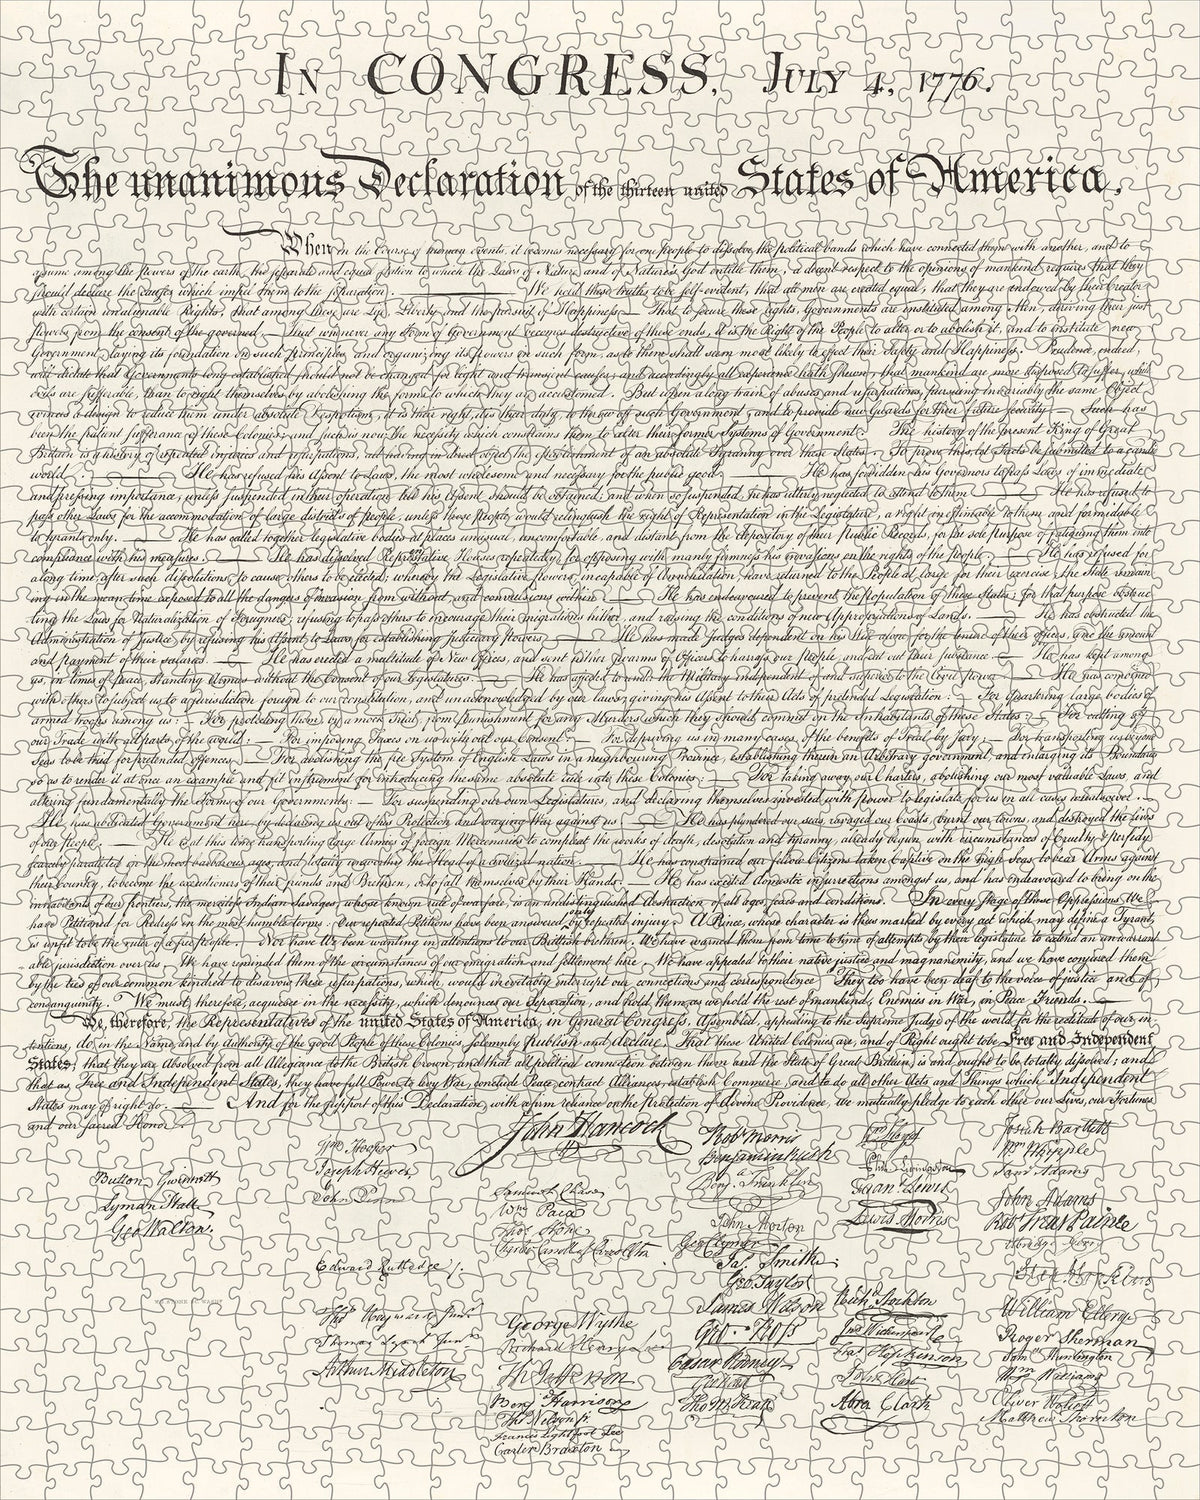 IN CONGRESS, JULY 4, 1776.
The unanimous Declaration of the thirteen united States of America,
When in the Course of human events, it becomes necessary for one people to dissolve the political bands which have connected them with another, and to
assume among the powers of the earth, the separate and equal station to which the Laws of Nature and of Nature's God entitle them, a decent respect to the opinions of mankind requires that they
should declare the causes which impel them to the separation. — We hold these truths to be self-evident, that all men are created equal, that they are endowed by their Creator
with certain unalienable Rights, that among these are Life, Liberty and the pursuit of Happiness. — That to secure these rights, Governments are instituted among Men, deriving their just
powers from the consent of the governed, — That whenever any Form of Government becomes destructive of these ends, it is the Right of the People to alter or to abolish it, and to institute new
Government, laying its foundation on such principles and organizing its powers in such form, as to them shall seem most likely to effect their Safety and Happiness. Prudence, indeed,
will dictate that Governments long established should not be changed for light and transient causes; and accordingly all experience hath shewn, that mankind are more disposed to suffer, while
evils are sufferable, than to right themselves by abolishing the forms to which they are accustomed. But when a long train of abuses and usurpations, pursuing invariably the same Object
evinces a design to reduce them under absolute Despotism, it is their right, it is their duty, to throw off such Government, and to provide new Guards for their future security. — Such has
been the patient sufferance of these Colonies; and such is now the necessity which constrains them to alter their former Systems of Government. The history of the present King of Great
Britain is a history of repeated injuries and usurpations, all having in direct object the establishment of an absolute Tyranny over these States. To prove this, let Facts be submitted to a candid
world. — He has refused his Assent to Laws, the most wholesome and necessary for the public good. — He has forbidden his Governors to pass Laws of immediate
and pressing importance, unless suspended in their operation till his Assent should be obtained; and when so suspended, he has utterly neglected to attend to them. — He has refused to
pass other Laws for the accommodation of large districts of people, unless those people would relinquish the right of Representation in the Legislature, a right inestimable to them and formidable
to tyrants only. — He has called together legislative bodies at places unusual, uncomfortable, and distant from the depository of their public Records, for the sole purpose of fatiguing them into
compliance with his measures. — He has dissolved Representative Houses repeatedly, for opposing with manly firmness his invasions on the rights of the people. — He has refused for
a long time, after such dissolutions, to cause others to be elected; whereby the Legislative powers, incapable of Annihilation, have returned to the People at large for their exercise; the State remain-
ing in the mean time exposed to all the dangers of invasion from without, and convulsions within. — He has endeavoured to prevent the population of these States; for that purpose obstruc-
ting the Laws for Naturalization of Foreigners; refusing to pass others to encourage their migrations hither, and raising the conditions of new Appropriations of Lands. — He has obstructed the
Administration of Justice, by refusing his Assent to Laws for establishing Judiciary powers. — He has made Judges dependent on his Will alone, for the tenure of their offices, and the amount
and payment of their salaries. — He has erected a multitude of New Offices, and sent hither swarms of Officers to harrass our people, and eat out their substance. — He has kept among
us, in times of peace, Standing Armies without the Consent of our legislatures. — He has affected to render the Military independent of and superior to the Civil power. — He has combined
with others to subject us to a jurisdiction foreign to our constitution, and unacknowledged by our laws; giving his Assent to their Acts of pretended Legislation: — For Quartering large bodies of
armed troops among us: — For protecting them, by a mock Trial, from punishment for any Murders which they should commit on the Inhabitants of these States: — For cutting off
our Trade with all parts of the world: — For imposing Taxes on us without our Consent: — For depriving us in many cases, of the benefits of Trial by Jury: — For transporting us beyond
Seas to be tried for pretended offences — For abolishing the free System of English Laws in a neighbouring Province, establishing therein an Arbitrary government, and enlarging its Boundaries
so as to render it at once an example and fit instrument for introducing the same absolute rule into these Colonies: — For taking away our Charters, abolishing our most valuable Laws, and
altering fundamentally the Forms of our Governments: — For suspending our own Legislatures, and declaring themselves invested with power to legislate for us in all cases whatsoever. —
He has abdicated Government here, by declaring us out of his Protection and waging War against us. — He has plundered our seas, ravaged our Coasts, burnt our towns, and destroyed the lives
of our people. — He is at this time transporting large Armies of foreign Mercenaries to compleat the works of death, desolation and tyranny, already begun with circumstances of Cruelty & perfidy
scarcely paralleled in the most barbarous ages, and totally unworthy the Head of a civilized nation. — He has constrained our fellow Citizens taken Captive on the high Seas to bear Arms against
their Country, to become the executioners of their friends and Brethren, or to fall themselves by their Hands. — He has excited domestic insurrections amongst us, and has endeavoured to bring on the
inhabitants of our frontiers, the merciless Indian Savages, whose known rule of warfare, is an undistinguished destruction of all ages, sexes and conditions. In every stage of these Oppressions We
have Petitioned for Redress in the most humble terms: Our repeated Petitions have been answered only by repeated injury. A Prince, whose character is thus marked by every act which may define a Tyrant,
is unfit to be the ruler of a free people. Nor have We been wanting in attentions to our Brittish brethren. We have warned them from time to time of attempts by their legislature to extend an unwarrant-
able jurisdiction over us. We have reminded them of the circumstances of our emigration and settlement here. We have appealed to their native justice and magnanimity, and we have conjured them
by the ties of our common kindred to disavow these usurpations, which, would inevitably interrupt our connections and correspondence. They too have been deaf to the voice of justice and of
consanguinity. We must, therefore, acquiesce in the necessity, which denounces our Separation, and hold them, as we hold the rest of mankind, Enemies in War, in Peace Friends. —
We, therefore, the Representatives of the united States of America, in General Congress, Assembled, appealing to the Supreme Judge of the world for the rectitude of our in-
tentions, do, in the Name, and by Authority of the good People of these Colonies, solemnly publish and declare, That these United Colonies are, and of Right ought to be Free and Independent
States; that they are Absolved from all Allegiance to the British Crown, and that all political connection between them and the State of Great Britain, is and ought to be totally dissolved; and
that as Free and Independent States, they have full Power to levy War, conclude Peace, contract Alliances, establish Commerce, and to do all other Acts and Things which Independent
States may of right do. — And for the support of this Declaration, with a firm reliance on the Protection of divine Providence, we mutually pledge to each other our Lives, our Fortunes
and our sacred Honor.
Button Gwinnett
Lyman Hall
Geo Walton.
Wm Hooper
Joseph Hewes,
John Penn
Edward Rutledge /.
Thos Heyward Junr.
Thomas Lynch Junr.
Arthur Middleton
John Hancock
Samuel Chase
Wm Paca
Thos Stone
Charles Carroll of Carrollton
George Wythe
Richard Henry Lee
Th Jefferson
Benj Harrison
Thos Nelson jr.
Francis Lightfoot Lee
Carter Braxton
Robt Morris
Benjamin Rush
Benj. Franklin
John Morton
Geo Clymer
Jas. Smith.
Geo. Taylor
James Wilson
Geo. Ross
Caesar Rodney
Geo Read
Tho M:Kean
Wm Floyd
Phil. Livingston
Frans. Lewis
Lewis Morris
Richd. Stockton
Jno Witherspoon
Fras. Hopkinson
John Hart
Abra Clark
Josiah Bartlett
Wm Whipple
Saml Adams
John Adams
Robt Treat Paine
Elbridge Gerry
Step Hopkins
William Ellery
Roger Sherman
Saml Huntington
Wm Williams
Oliver Wolcott
Matthew Thornton